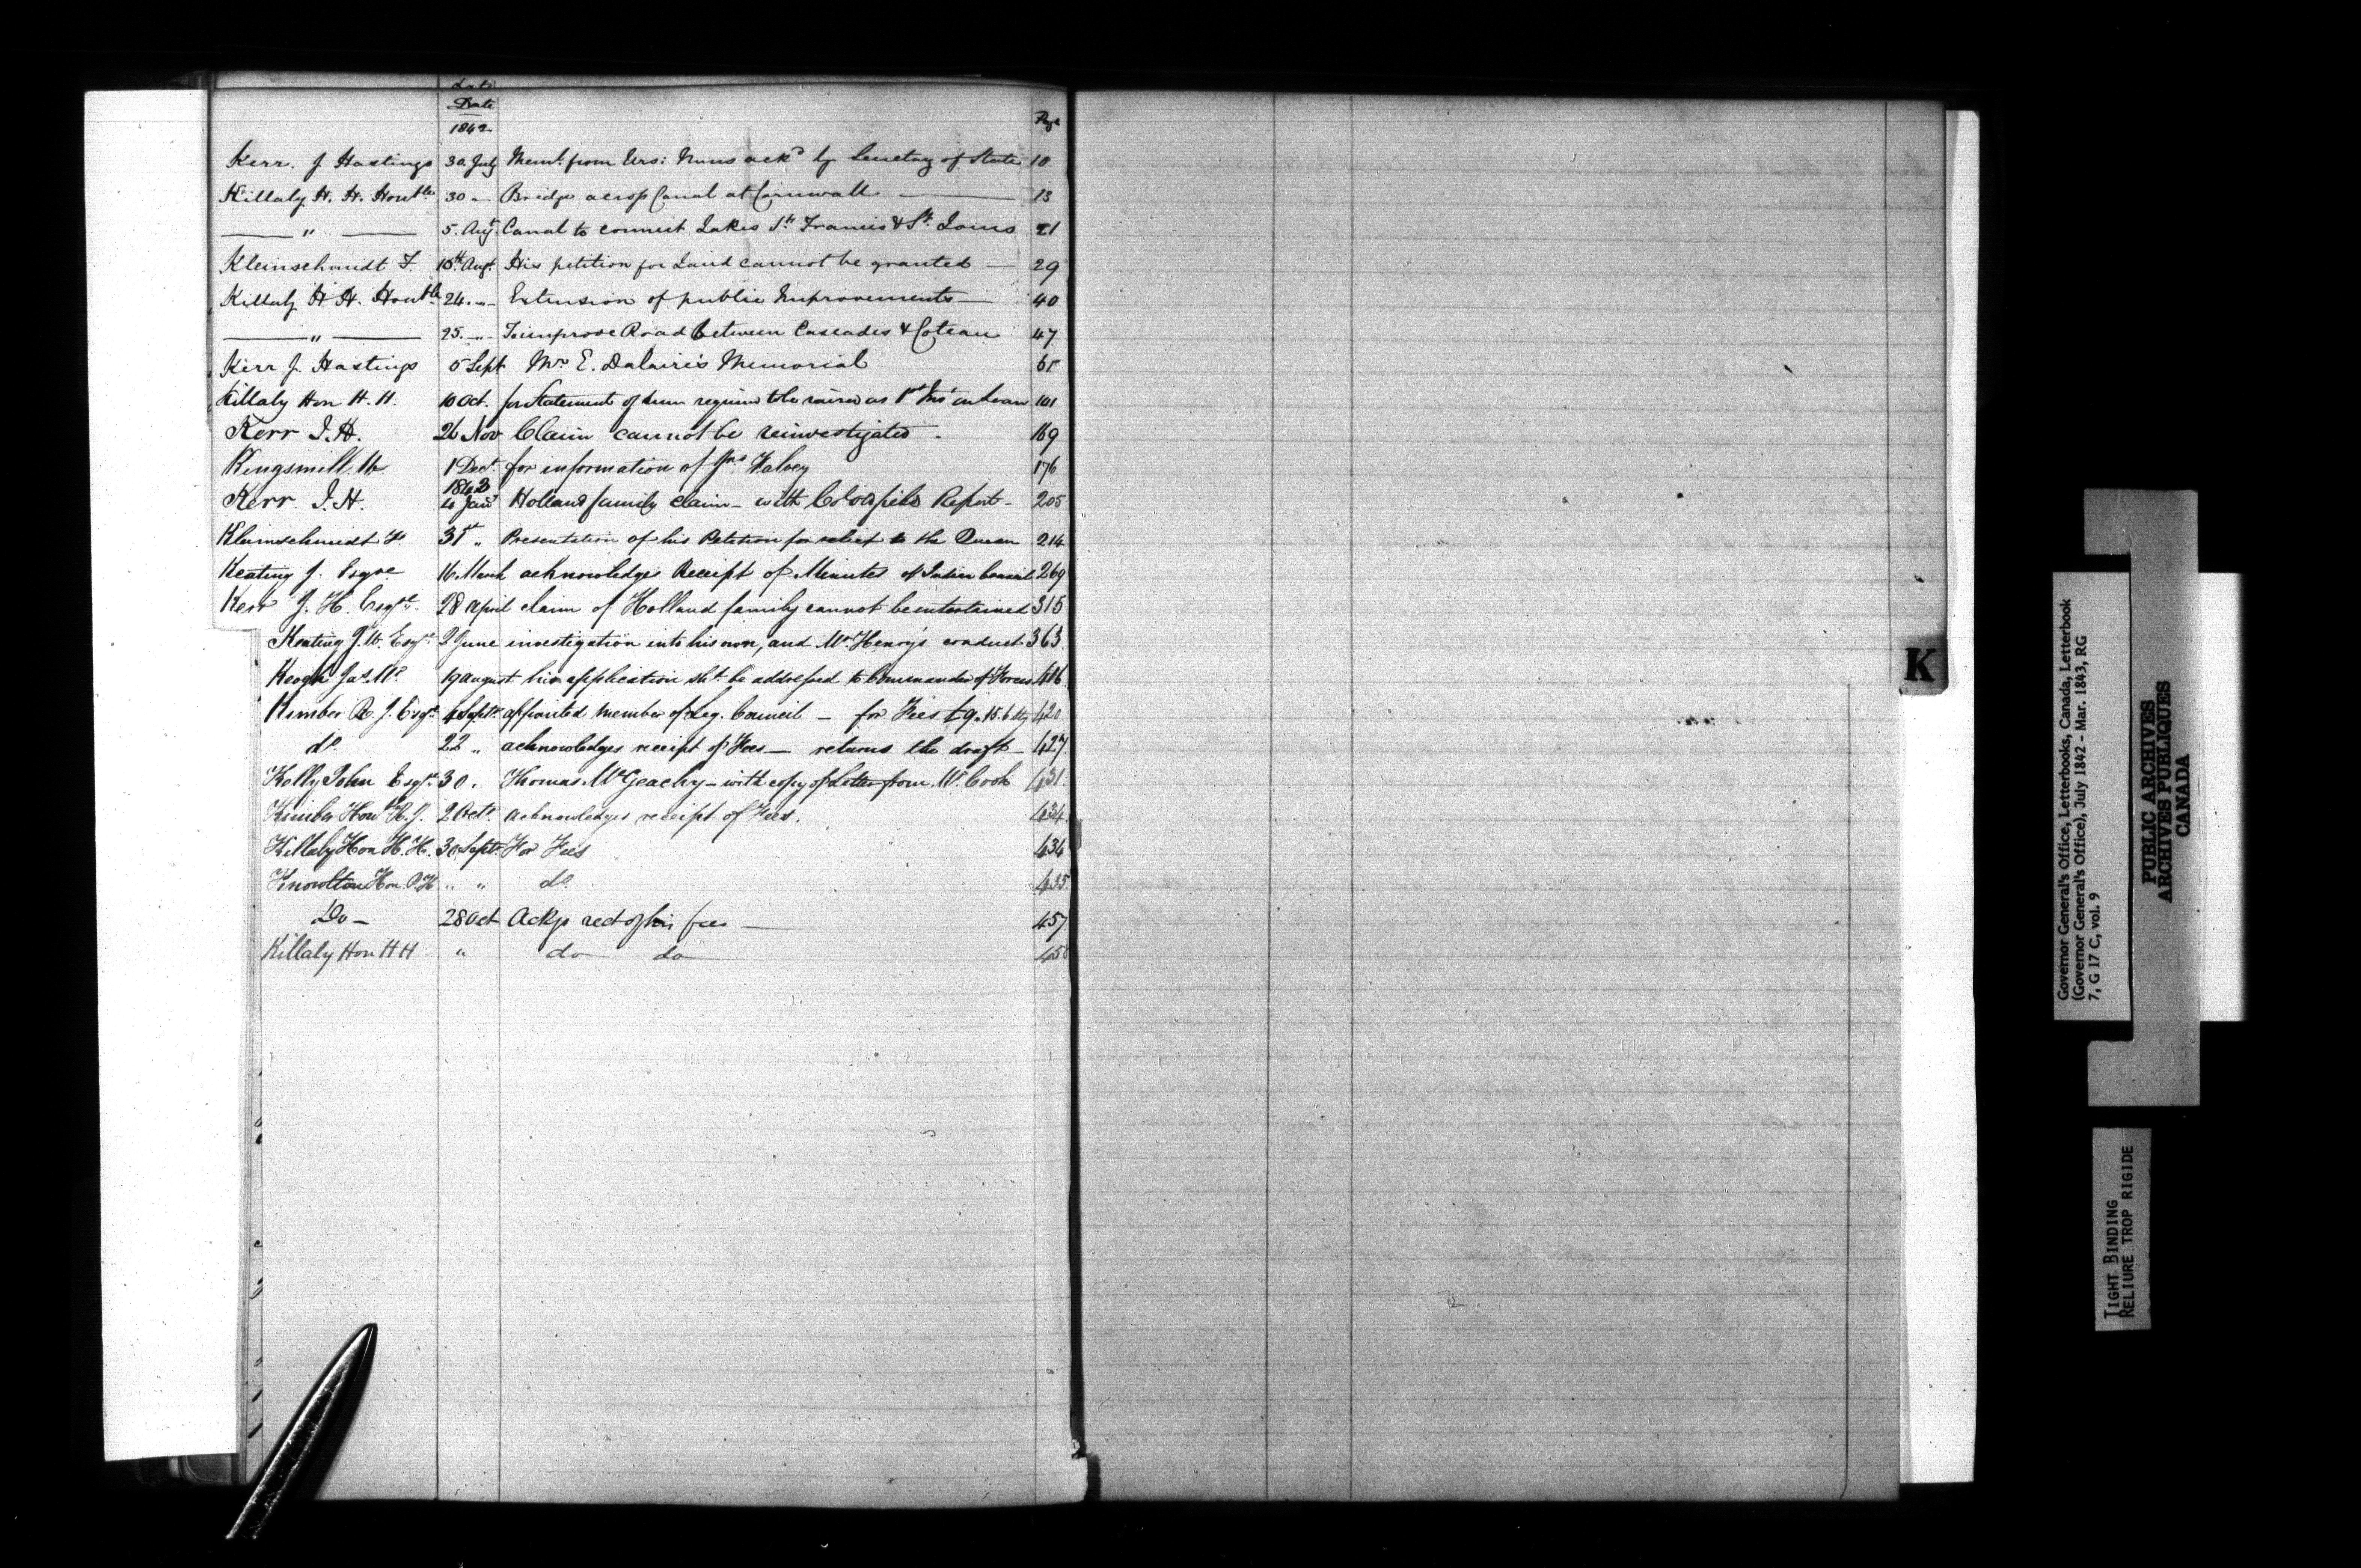 Date
Date
1842
Page
Kerr. J Hastings 30. July Meml. from Urs: Nuns ackd by Secretary of State 10
Killaly H. H. Honble 30 " Bridge across Canal at Cornwall 13
" 5. Augt. Canal to connect Lakes St. Francis & St. Louis 21
Kleinschmidt F. 10th Augt. His petition for Land cannot be granted 29
Killaly H H. Honble 24. " Extension of public Improvements 40
" 25. " To improve Road between Cascades & Coteau 47
Kerr J. Hastings 5 Sept Mr E. Dalaire's Memorial 65
Killaly Hon H. H. 10 Oct. for Statement of sum required to be raised as 1st Ins in Loan 101
Kerr J. H. 26 Nov Claim cannot be reinvestigated. 169
Kingsmill W 1 Dect. for information of Jas Halvey 176
1843
Kerr. J. H. 4 Jany Holland family claim - with Report - 205
Kleinschmidt F. 31st " Presentation of his Petition for relief to the Queen 214
Keating J. Esqre 16 March acknowledges Receipt of Minutes of Indian Council 269
Kerr J. H. Esqre. 28 April claim of Holland family cannot be entertained 315
Keating J. W. Esqr. 2 June investigation into his own, and Mr Henry's conduct 363
Keogh Jas. Mc. 19 august his application shd. be addressed to Commander of Forces 416
Kimber R. J. Esqr. 4 Septr. appointed member of Leg. Council - for Fees £9.15.6 Stg 420
do. 22 " acknowledges receipt of Fees - returns the draft - 427.
Kelly John Esqr. 30. Thomas McGeachy - with copy of Letter from Mr. Cook 431.
Kimber Hon R. J. 2 Octr. acknowledges receipt of Fees. 434.
Killaly Hon H. H. 30 Septr. For Fees 434
Knowlton Hon. P. H " " do. 435.
Do - 28 Oct Ackgs rect of his fees 457.
Killaly Hon H H " do do 458
K
Governor General's Office, Letterbooks, Canada, Letterbook
(Governor General's Office), July 1842 - Mar. 1843, RG
7, G 17 C, vol. 9
PUBLIC ARCHIVES
ARCHIVES PUBLIQUES
CANADA
TIGHT BINDING
RELIURE TROP RIGIDE